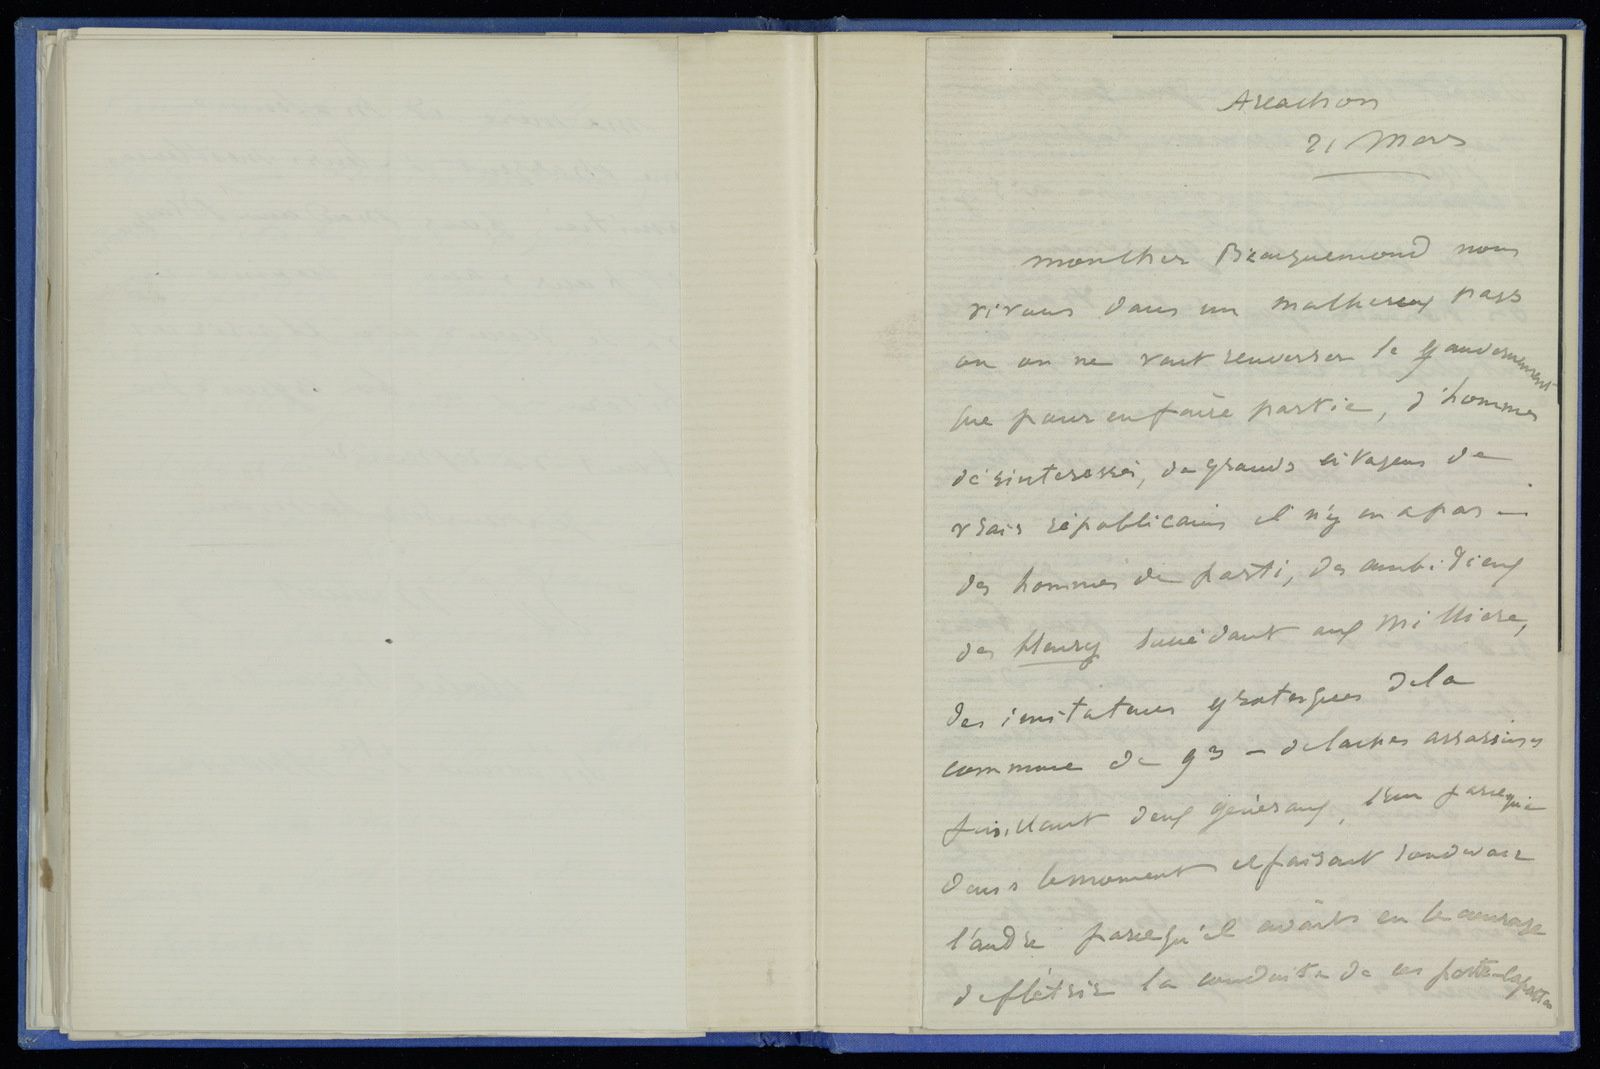 Arcachon
21 Mars
mon cher Bracquemond nous
vivons dans un malheureux pays
on on ne veut renverser le gouvernement
que pour en faire partie, d'hommes
désinteressés, de grands citoyens de
vrais républicains il n'y en a pas —
des hommes de parti, des ambitieux
des Henry succédant aux Millière,
des imitateurs grotesques de la
commune de 93 — de laches assassins
fusillant deux généraux, l'un parce que
dans le moment il faisait son devoir
l'autre parcequ'il avait eu le courage
de flétrir la conduite de ces